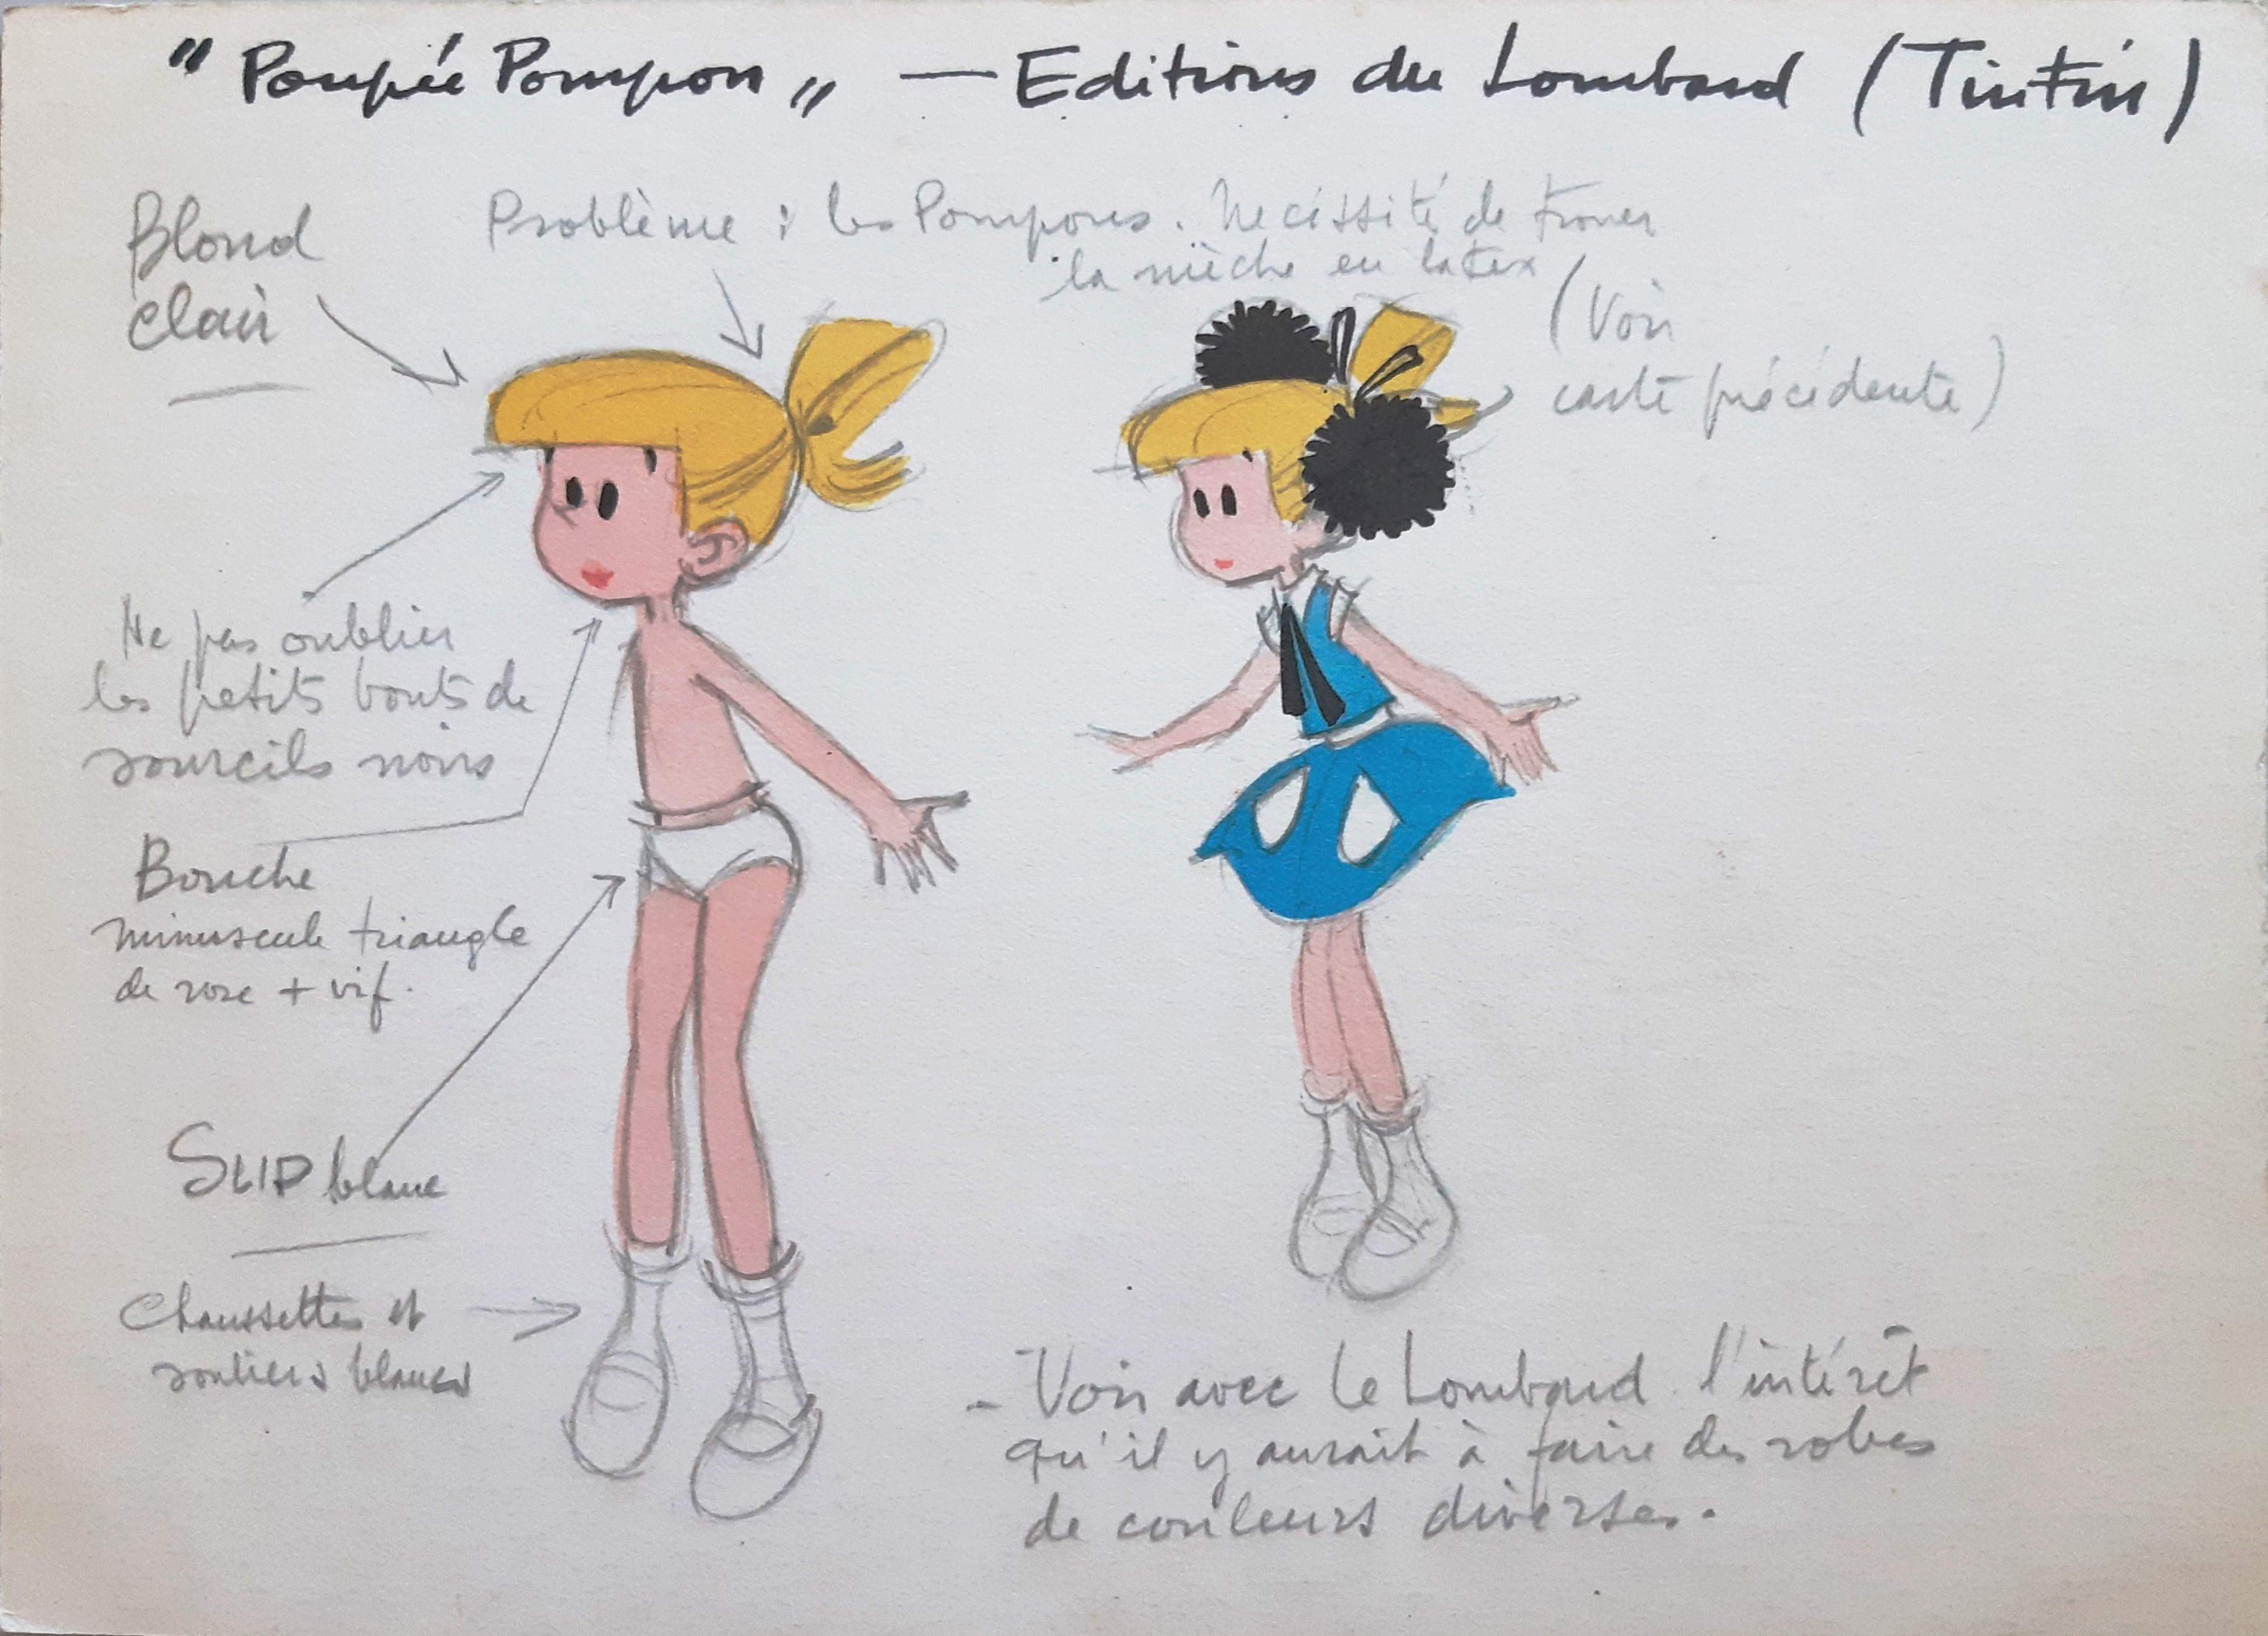 "Poupée Pompon" — Editions du Lombard (Tintin)
Blond
clair
Problème : les Pompons. Nécéssité de trouer
la mèche en latex
(Voir
carte précédente)
Ne pas oublier
les petits bouts de
sourcils noirs
Bouche
minuscule triangle
de rose + vif.
SLIP blanc
Chaussettes et
souliers blancs
- Voir avec le Lombard l'intérêt
qu'il y aurait à faire des robes
de couleurs diverses.